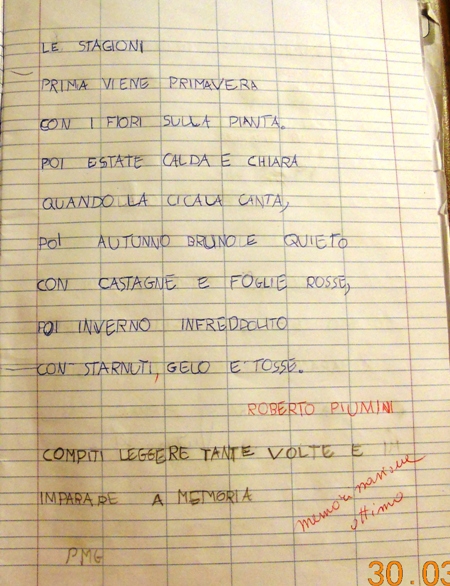 LE STAGIONI
PRIMA VIENE PRIMAVERA
CON I FIORI SULLA PIANTA.
POI ESTATE CALDA E CHIARA
QUANDO LA CICALA CANTA,
POI AUTUNNO BRUNO E QUIETO
CON CASTAGNE E FOGLIE ROSSE,
POI INVERNO INFREDDOLITO
CON STARNUTI, GELO E TOSSE.
ROBERTO PIUMINI
COMPITI LEGGERE TANTE VOLTE E
IMPARARE A MEMORIA
memorizzazione
ottimo
PMG
30.03